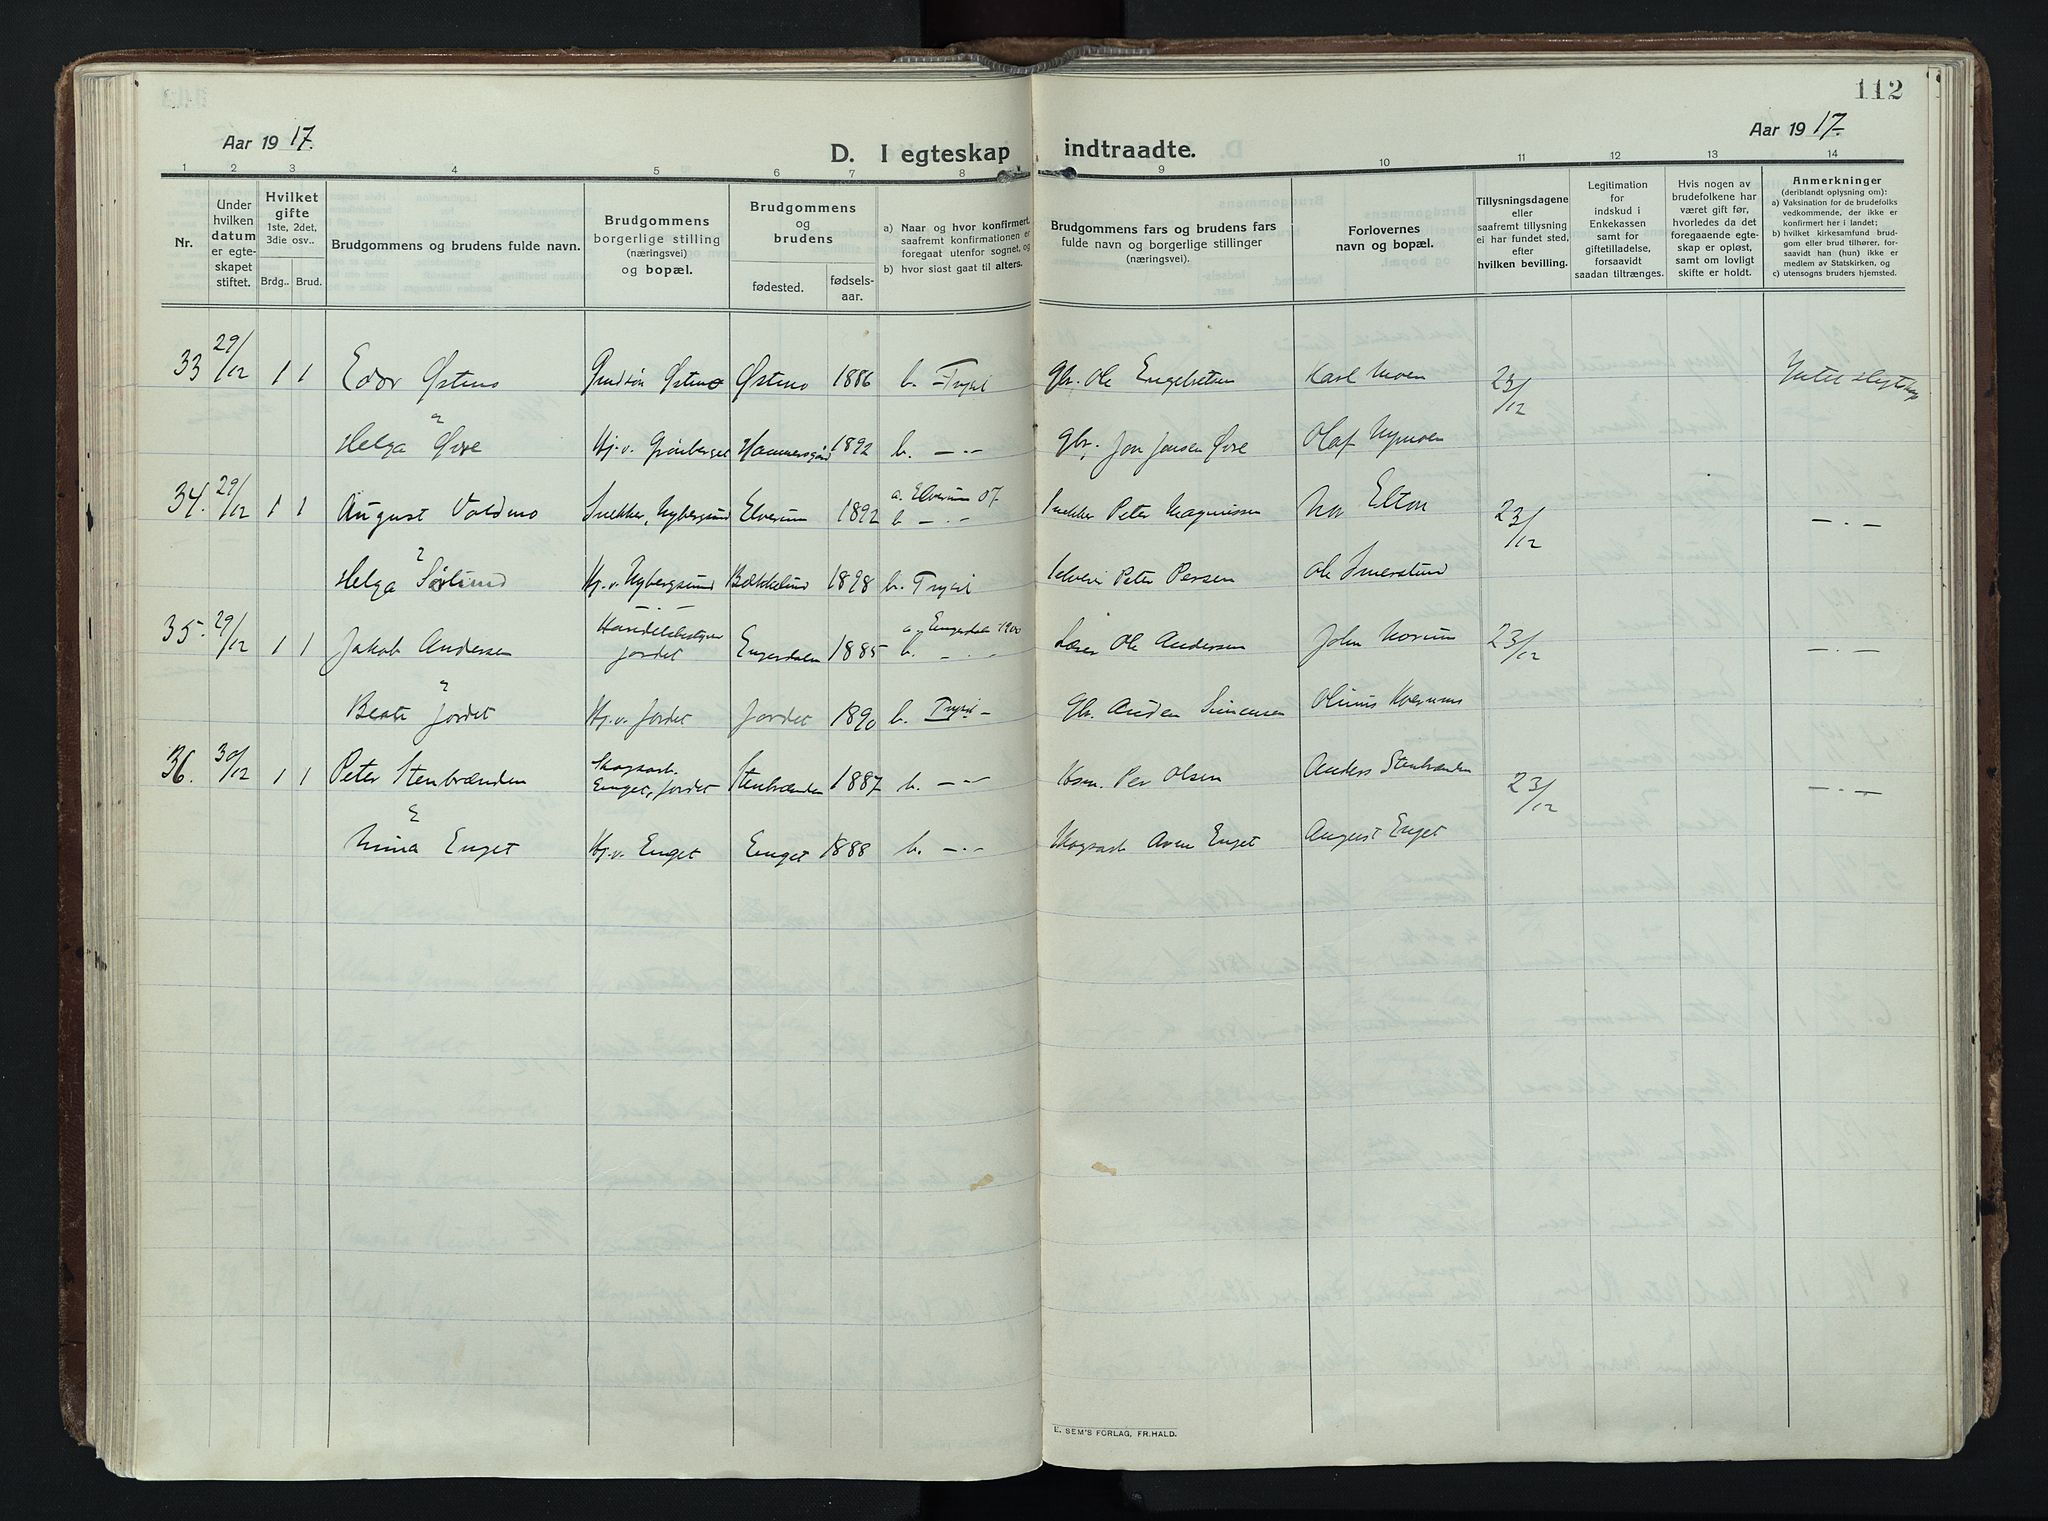 112
Aar 1917.
Aar 1917.
D. I egteskap indtraadte.
1 2 3 4 5 6 7 8 9 10 11 12 13 14
Nr.
Under hvilken datum er egteskapet stiftet.
Hvilket gifte 1ste, 2det, 3die osv..
Brdg.. Brud.
Brudgommens og brudens fulde navn.
Brudgommens borgerlige stilling (næringsvei) og bopæl.
Brudgommens og brudens
fødested. fødselsaar.
a) Naar og hvor konfirmert, saafremt konfirmationen er foregaat utenfor sognet, og
b) hvor sidst gaat til alters.
Brudgommens fars og brudens fars fulde navn og borgerlige stillinger (næringsvei).
Forlovernes navn og bopæl.
Tillysningsdagene eller saafremt tillysning ei har fundet sted, efter hvilken bevilling.
Legitimation for indskud i Enkekassen samt for giftetilladelse, forsaavidt saadan tiltrænges.
Hvis nogen av brudefolkene har været gift før, hvorledes da det foregaaende egteskap er opløst, samt om lovligt skifte er holdt.
Anmerkninger
(deriblandt oplysning om):
a) Vaksination for de brudefolks vedkommende, der ikke er konfirmert her i landet;
b) hvilket kirkesamfund brudgom eller brud tilhører, forsaavidt han (hun) ikke er medlem av Statskirken, og
c) utensogns bruders hjemsted.
33 29/12 1 1 Edor Østmo Østmo 1886 b. Trysil Gbr. Ole Engebretsen Karl Moen 23/12
Helga Øvre Hj.v. Grønberget 1892 b. -"- Gbr. Jon Jonsen Øvre Olaf Nymoen
34. 29/12 1 1 August Voldmo Snekker, Nybergsund Elverum 1892 a. Elverum 07 b. -"- Snekker Peter Magnussen Elton 23/12 -"-
Helga Sørlund Hj.v. Nybergsund Bækkelund 1898 b. Trysil Peter Persen Ole
35. 29/12 1 1 Jakob Andersen Handelsbestyrer Jordet Engerdalen 1885 a. Engerdalen 1900 b. -"- Ole Andersen John 23/12 -"-
Beate Jordet Hj.v. Jordet Jordet 1890 b. Trysil Gbr. Simensen
36. 30/12 1 1 Peter Stenbrænden Skogsarb. Enget, Jordet Stenbrænden 1887 b. -"- Hsm. Per Olsen Anders Stenbrænden 23/12 -"-
Enget Hj.v. Enget Enget 1888 b. -"- Skogsarb. Enget August Enget
E. SEM'S FORLAG, FR.HALD.